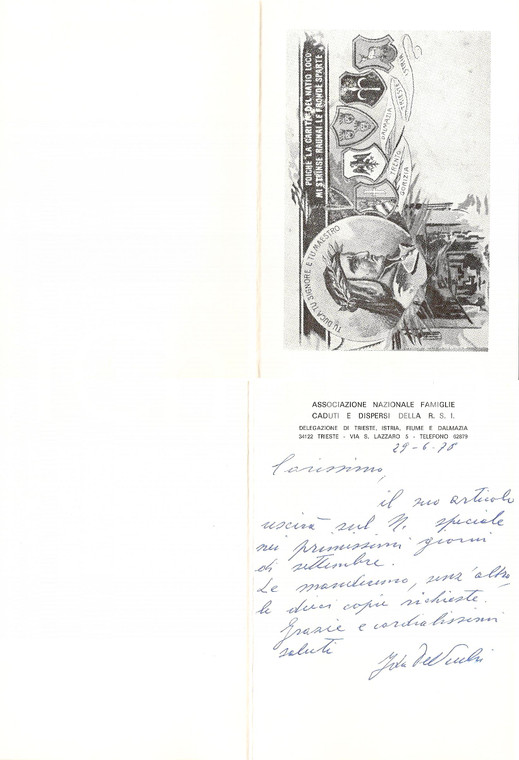 POICHÈ LA CARITÀ DEL NATIO LOCO
MI STRINSE, RAUNAI LE FRONDE SPARTE
ISTRIA
TRIESTE
DALMAZIA
TRENTO
GORIZIA
TU DUCA TU SIGNORE E TU MAESTRO
ASSOCIAZIONE NAZIONALE FAMIGLIE
CADUTI E DISPERSI DELLA R. S. I.
DELEGAZIONE DI TRIESTE, ISTRIA, FIUME E DALMAZIA
34122 TRIESTE - VIA S. LAZZARO 5 - TELEFONO 62879
29-6-70
Carissimo,
il suo articolo
uscirà sul N. speciale
nei primissimi giorni
di settembre.
Le manderemo, senz'altro,
le dieci copie richieste.
Grazie e cordialissimi
saluti